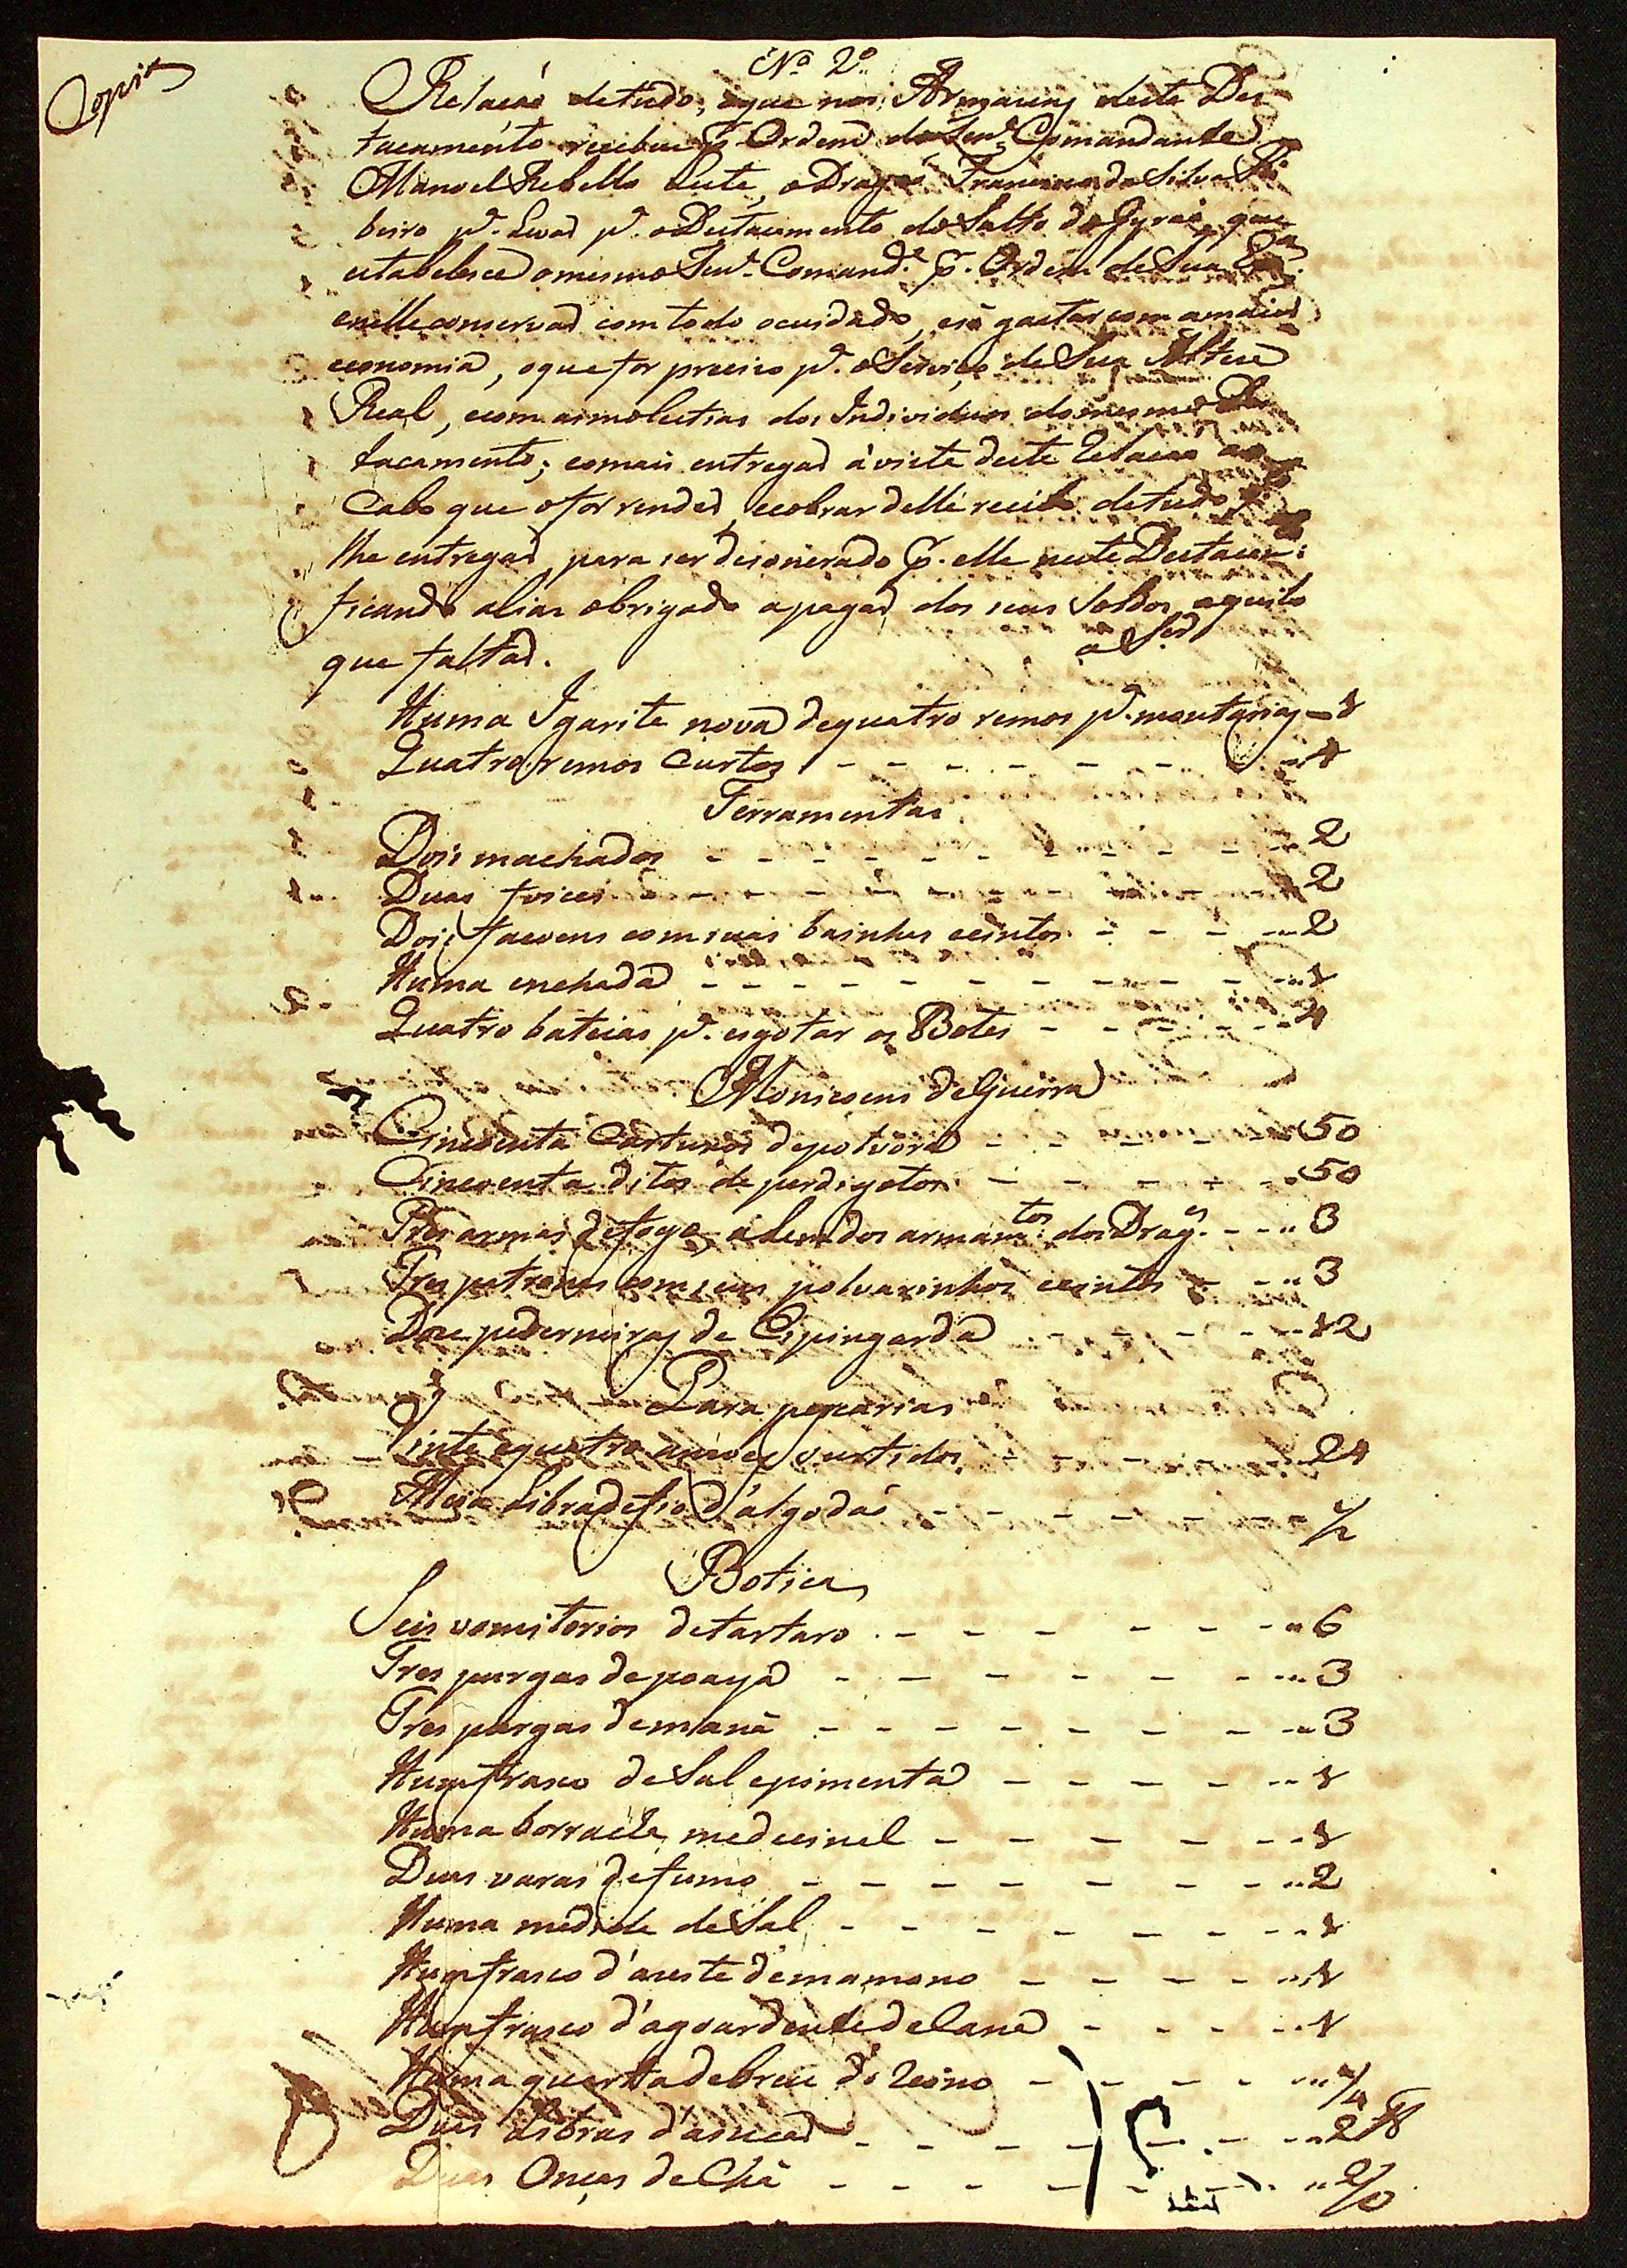 Copia
Nº 2º
Relação detudo, oque nos Armazens deste Des-
tacamento recebeu p. Ordem do Senr. Comandante
Manoel Rebello Leite, o Dragaõ Francisco da Silva Ri
beiro pª. Levar pª. o Destacamento do Salto do Gyraó, que
estabelesce o mesmo Senr. Comande. p. Ordem de Sua Exª.
enelle conservar com todo ocuidado, esó gastar com amaior
economia, oque for preciso pª. o Serviço de Sua Alteza
Real, ecom asmolestias dos Individuos domesmo Des
tacamento; eomais entregar ávista deste Relacaõ ao
Cabo que ofor render, ecobrar delle recibo detudo q.
lhe entregar, para ser desonerado p. elle neste Destacam:
ficando alias obrigado apagar dos seus Soldos aquilo
que faltar.
a Ser
Huma Igarite nova dequatro remos pª. montarias 1
Quatro remos Curtos 4
Ferramentas
Dois machados 2
Duas foices 2
Dois facoens comsuas bainhas ecintos 2
Huma enchada 1
Quatro bateias pª. esgotar os Botes 4
Moniçoens deGuerra
Cincoenta Cartuxos depolvora 50
Cincoenta ditos de perdigotos 50
Tres armas defogo, alemdos armamtos. dos Drags. 3
Tres patronas comseus polvarinhos ecintos 3
Doze pederneiras de Espingarda 12
Para pescarias
Vinte equatro anzoes surtidos 24
Meia Libra defio d'algodaõ 1/2
Botica
Seis vomitorios detartaro 6
Tres purgas depoaya 3
Tres purgas demaná 3
Humfrasco deSal epimenta 1
Huma borracha medecinal 1
Duas varas defumo 2
Huma medida deSal 1
Humfrasco d'azeite demamono 1
Humfrasco d'agoardente deCana 1
Huma quarta debreu do reino 1/4
Duas Libras d'assucar 2 lb
Duas Onças deChá 2/0